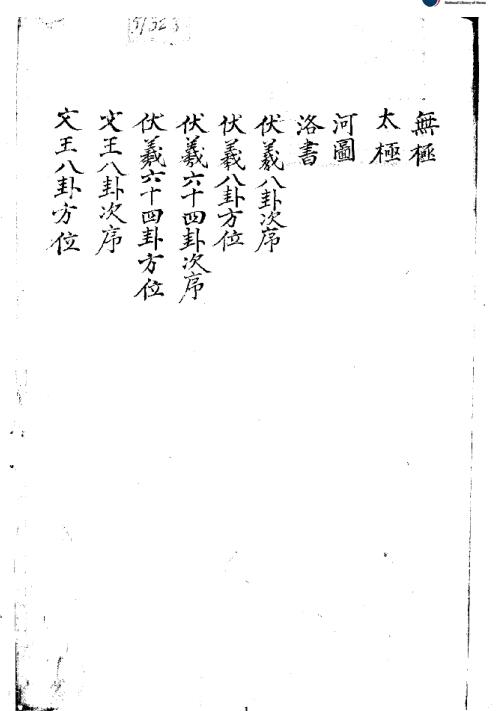 無極
太極
河圖
洛書
伏羲八卦次序
伏羲八卦方位
伏羲六十四卦次序
伏羲六十四卦方位
文王八卦次序
文王八卦方位
National Library of Korea
1